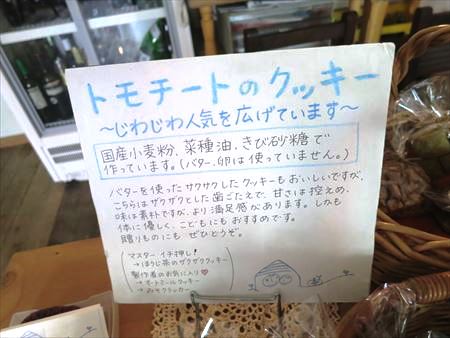 トモチートのクッキー
～じわじわ人気を広げています～
国産小麦粉、菜種油、きび砂糖で
作っています。(バター、卵は使っていません。)
バターを使ったサクサクしたクッキーもおいしいですが、
こちらはザクザクとした歯ごたえで、甘さは控えめ、
味は素朴ですが、より満足感があります。しかも
体に優しく、こどもにもおすすめです。
贈りものにも ぜひどうぞ。
マスター イチ押し!
→ほうじ茶のザクザククッキー
製作者のお気に入り♡
→オートミールクッキー
→みそクラッカー